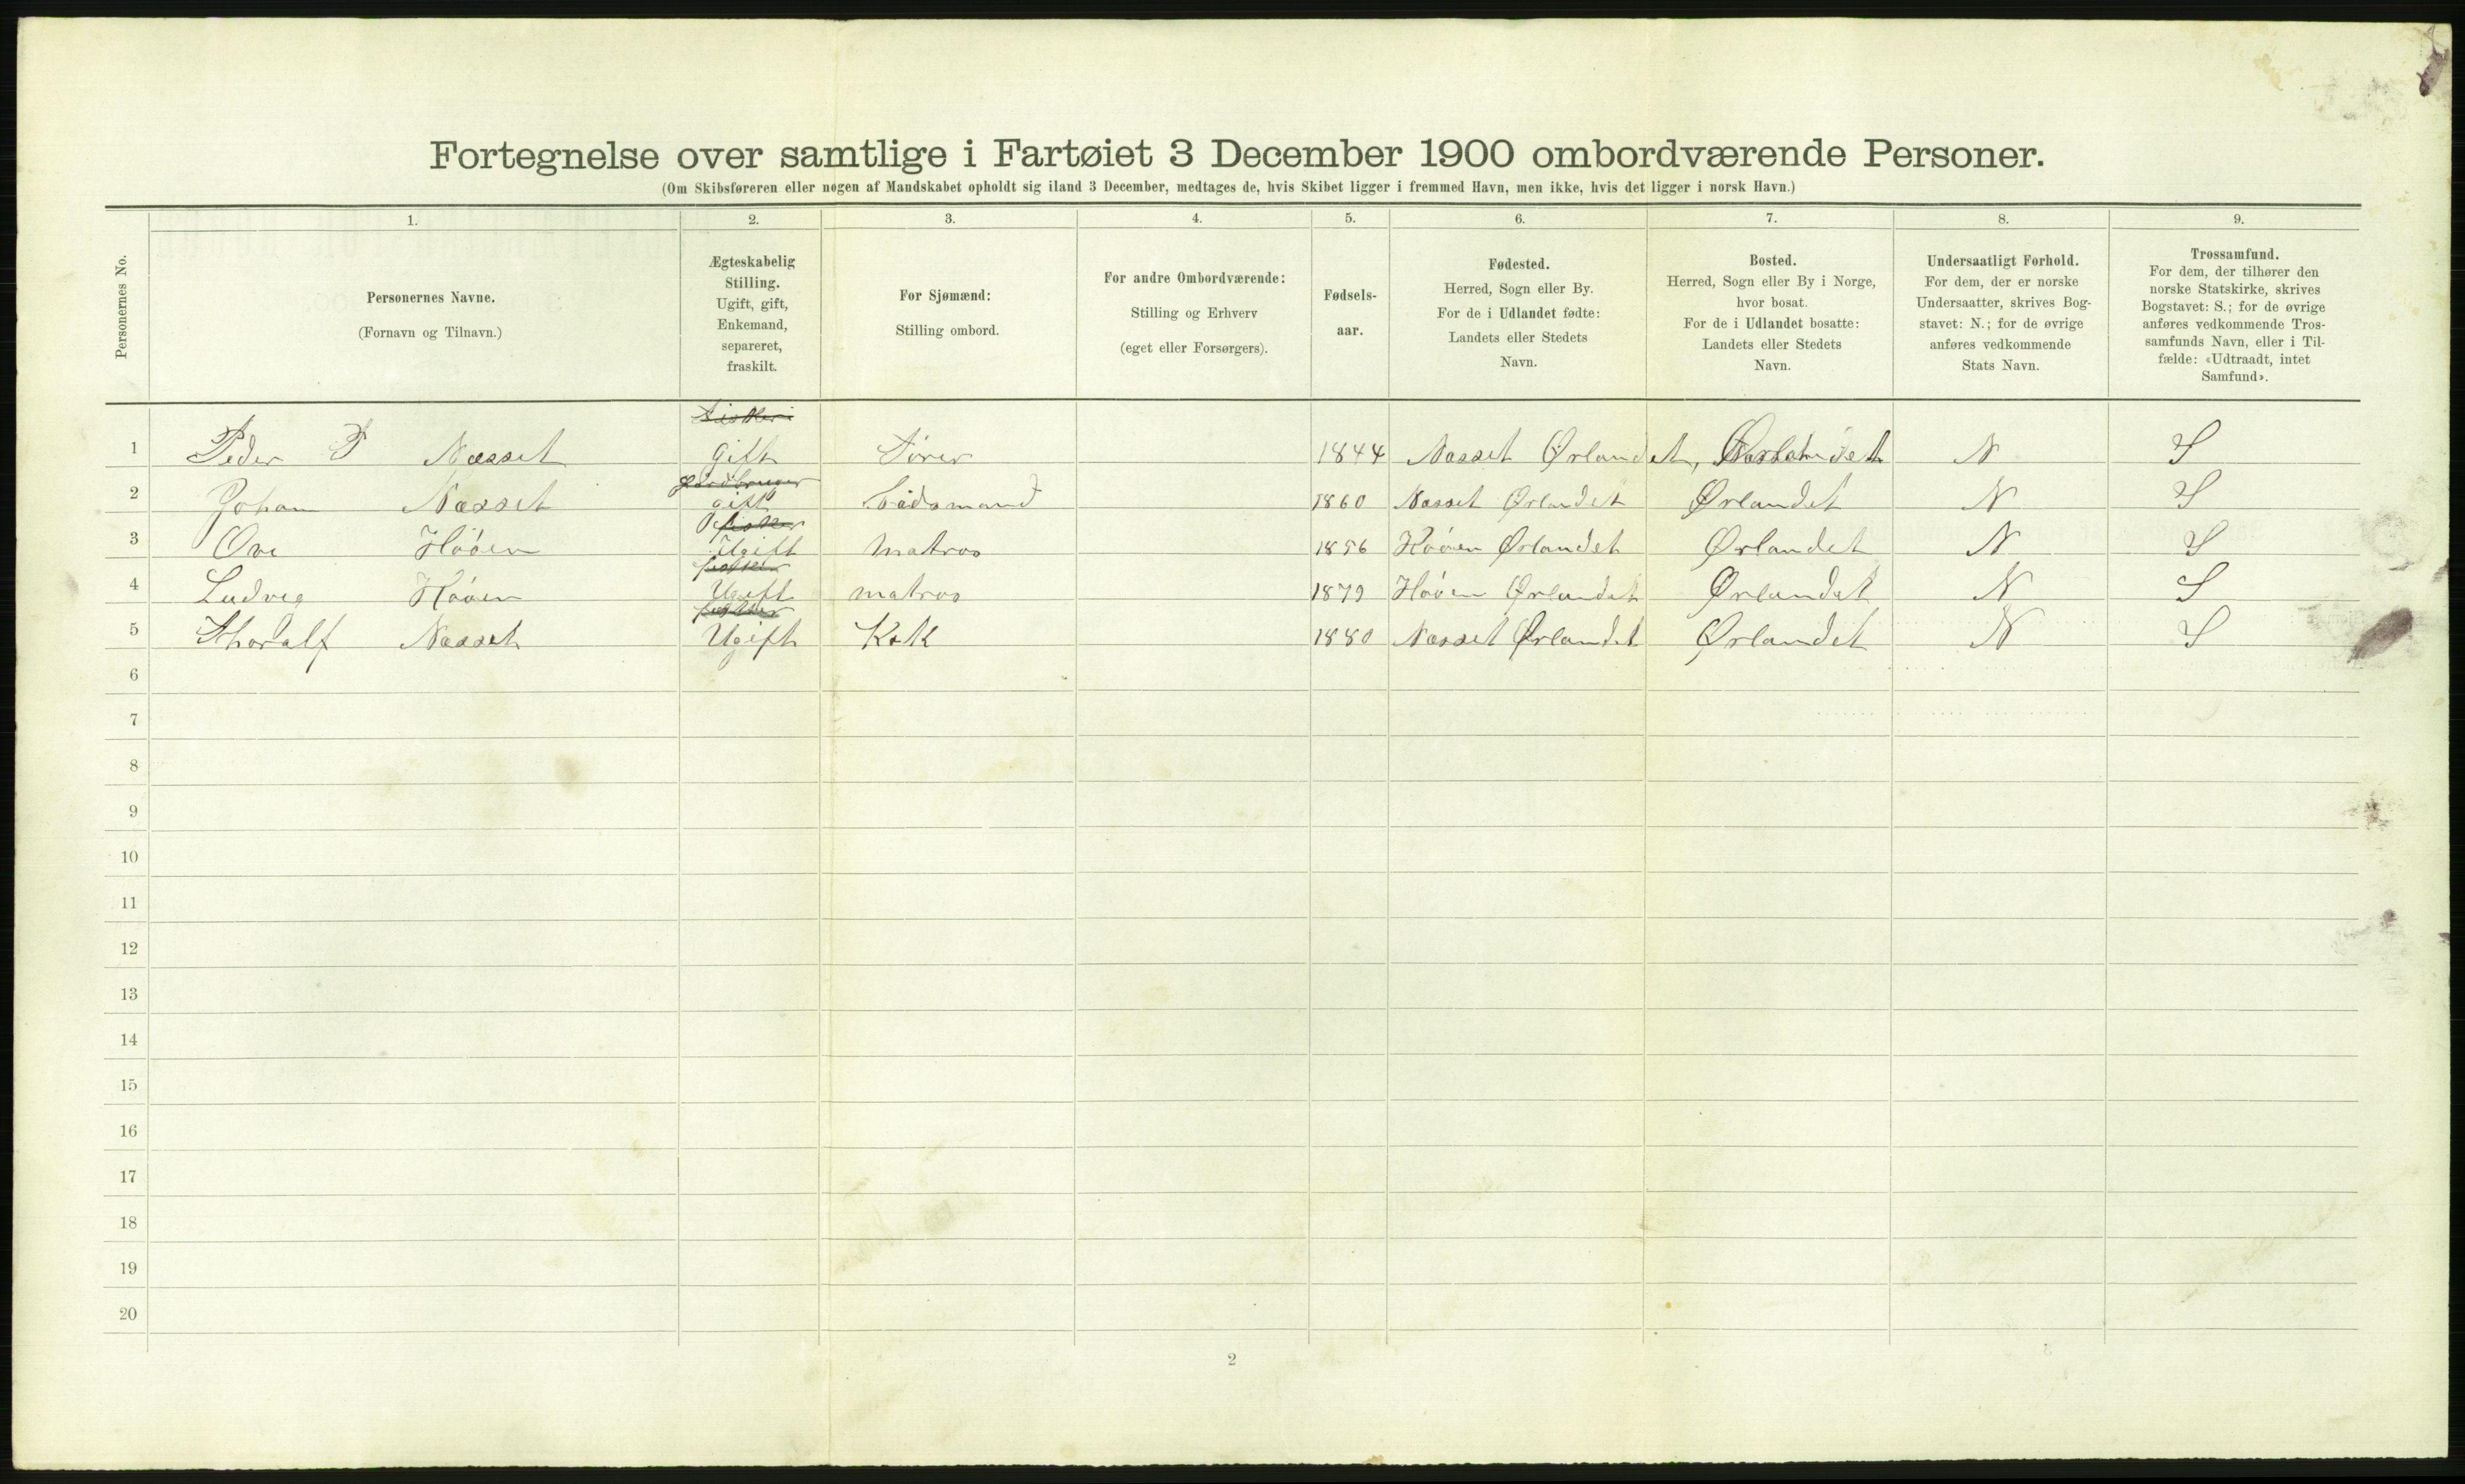 Fortegnelse over samtlige i Fartøiet 3 December 1900 ombordværende Personer.
(Om Skibsføreren eller nogen af Mandskabet opholdt sig iland 3 December, medtages de, hvis Skibet ligger i fremmed Havn, men ikke, hvis det ligger i norsk Havn.)
Personernes No.
1. 2. 3. 4. 5. 6. 7. 8. 9.
Personernes Navne.
(Fornavn og Tilnavn.)
Ægteskabelig
Stilling.
Ugift, gift,
Enkemand,
separeret,
fraskilt.
For Sjømænd:
Stilling ombord.
For andre Ombordværende:
Stilling og Erhverv
(eget eller Forsørgers).
Fødsels-
aar.
Fødested.
Herred, Sogn eller By.
For de i Udlandet fødte:
Landets eller Stedets
Navn.
Bosted.
Herred, Sogn eller By i Norge,
hvor bosat.
For de i Udlandet bosatte:
Landets eller Stedets
Navn.
Undersaatligt Forhold.
For dem, der er norske
Undersaatter, skrives Bog-
stavet: N.; for de øvrige
anføres vedkommende
Stats Navn.
Trossamfund.
For dem, der tilhører den
norske Statskirke, skrives
Bogstavet: S.; for de øvrige
anføres vedkommende Tros-
samfunds Navn, eller i Til-
fælde: «Udtraadt, intet
Samfund».
1 Peder P Næsset gift Fører 1844 Næsset Ørlandet, Ørlandet N S
gaardbruger
2 Johan Næsset gift Bædsmand 1860 Næsset Ørlandet Ørlandet N S
fisker
3 Ove Hóóen Ugift Matros 1856 Hóóen Ørlandet Ørlandet N S
fisker
4 Ludvig Hóóen Ugift matros 1879 Hóóen Ørlandet Ørlandet N S
fisker
5 Thoralf Næsset Ugift Kok 1880 Næsset Ørlandet Ørlandet N S
6
7
8
9
10
11
12
13
14
15
16
17
18
19
20
2